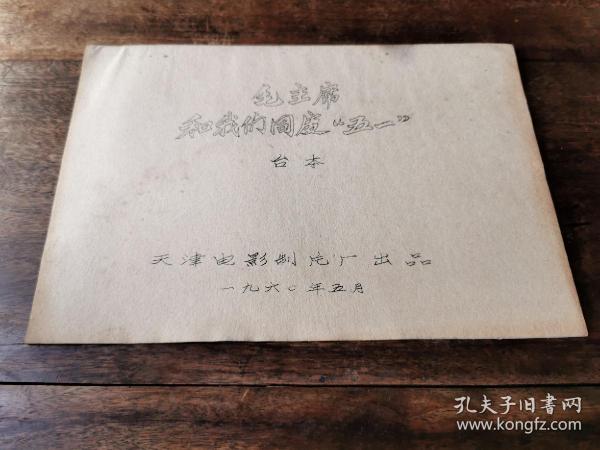 毛主席
和我们同庆“五一”
台本
天津电影制片厂出品
一九六〇年五月
孔夫子旧书网
www.kongfz.com